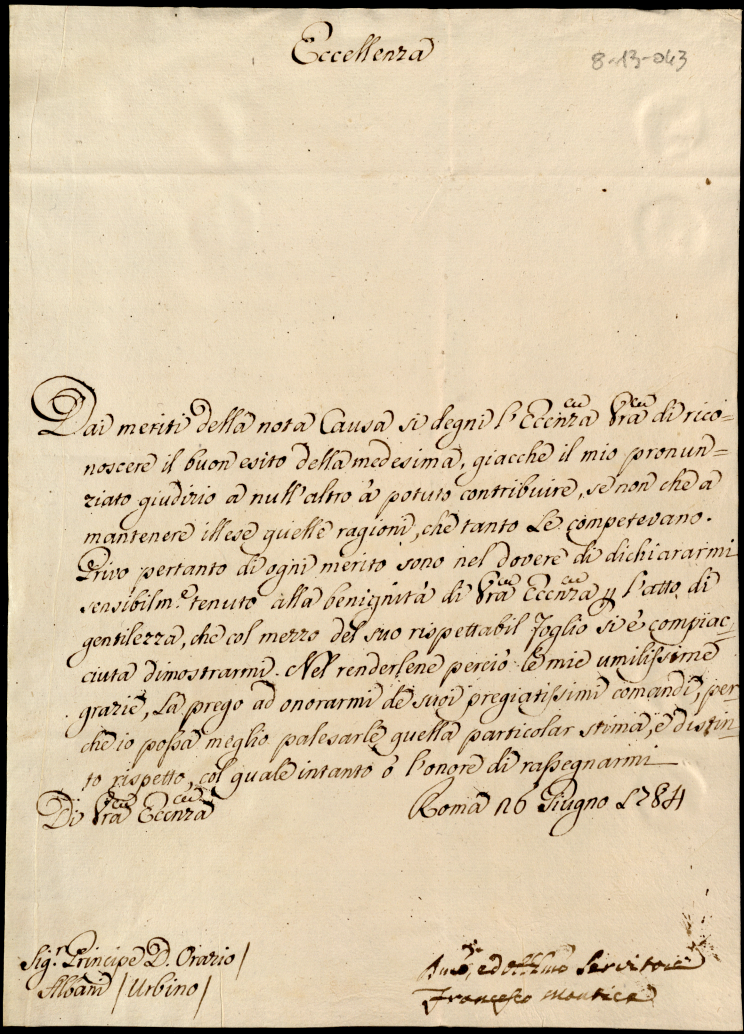 Eccellenza
8-13-043
Dai meriti della nota Causa si degni l'Eccnza Vra di rico=
noscere il buon esito della medesima, giacchè il mio pronun=
ziato giudizio a null'altro à potuto contribuire, se non che a
mantenere illese quelle ragioni, che tanto Le competevano.
Privo pertanto di ogni merito sono nel dovere di dichiararmi
sensibilm.e tenuto alla benignità di Vra Eccnza p l'atto di
gentilezza, che col mezzo del suo rispettabil Foglio si è compiac=
ciuta dimostrarmi. Nel renderlene perciò le mie umilissime
grazie, La prego ad onorarmi de suoi pregiatissimi comandi, per=
chè io possa meglio palesarle quella particolar stima, e distin=
to rispetto, col quale intanto ò l'onore di rassegnarmi
Di Vra Eccnza Roma 26 Giugno 1784
Sig.r Principe D. Orazio /
Albani / Urbino /
Servitore
Francesco